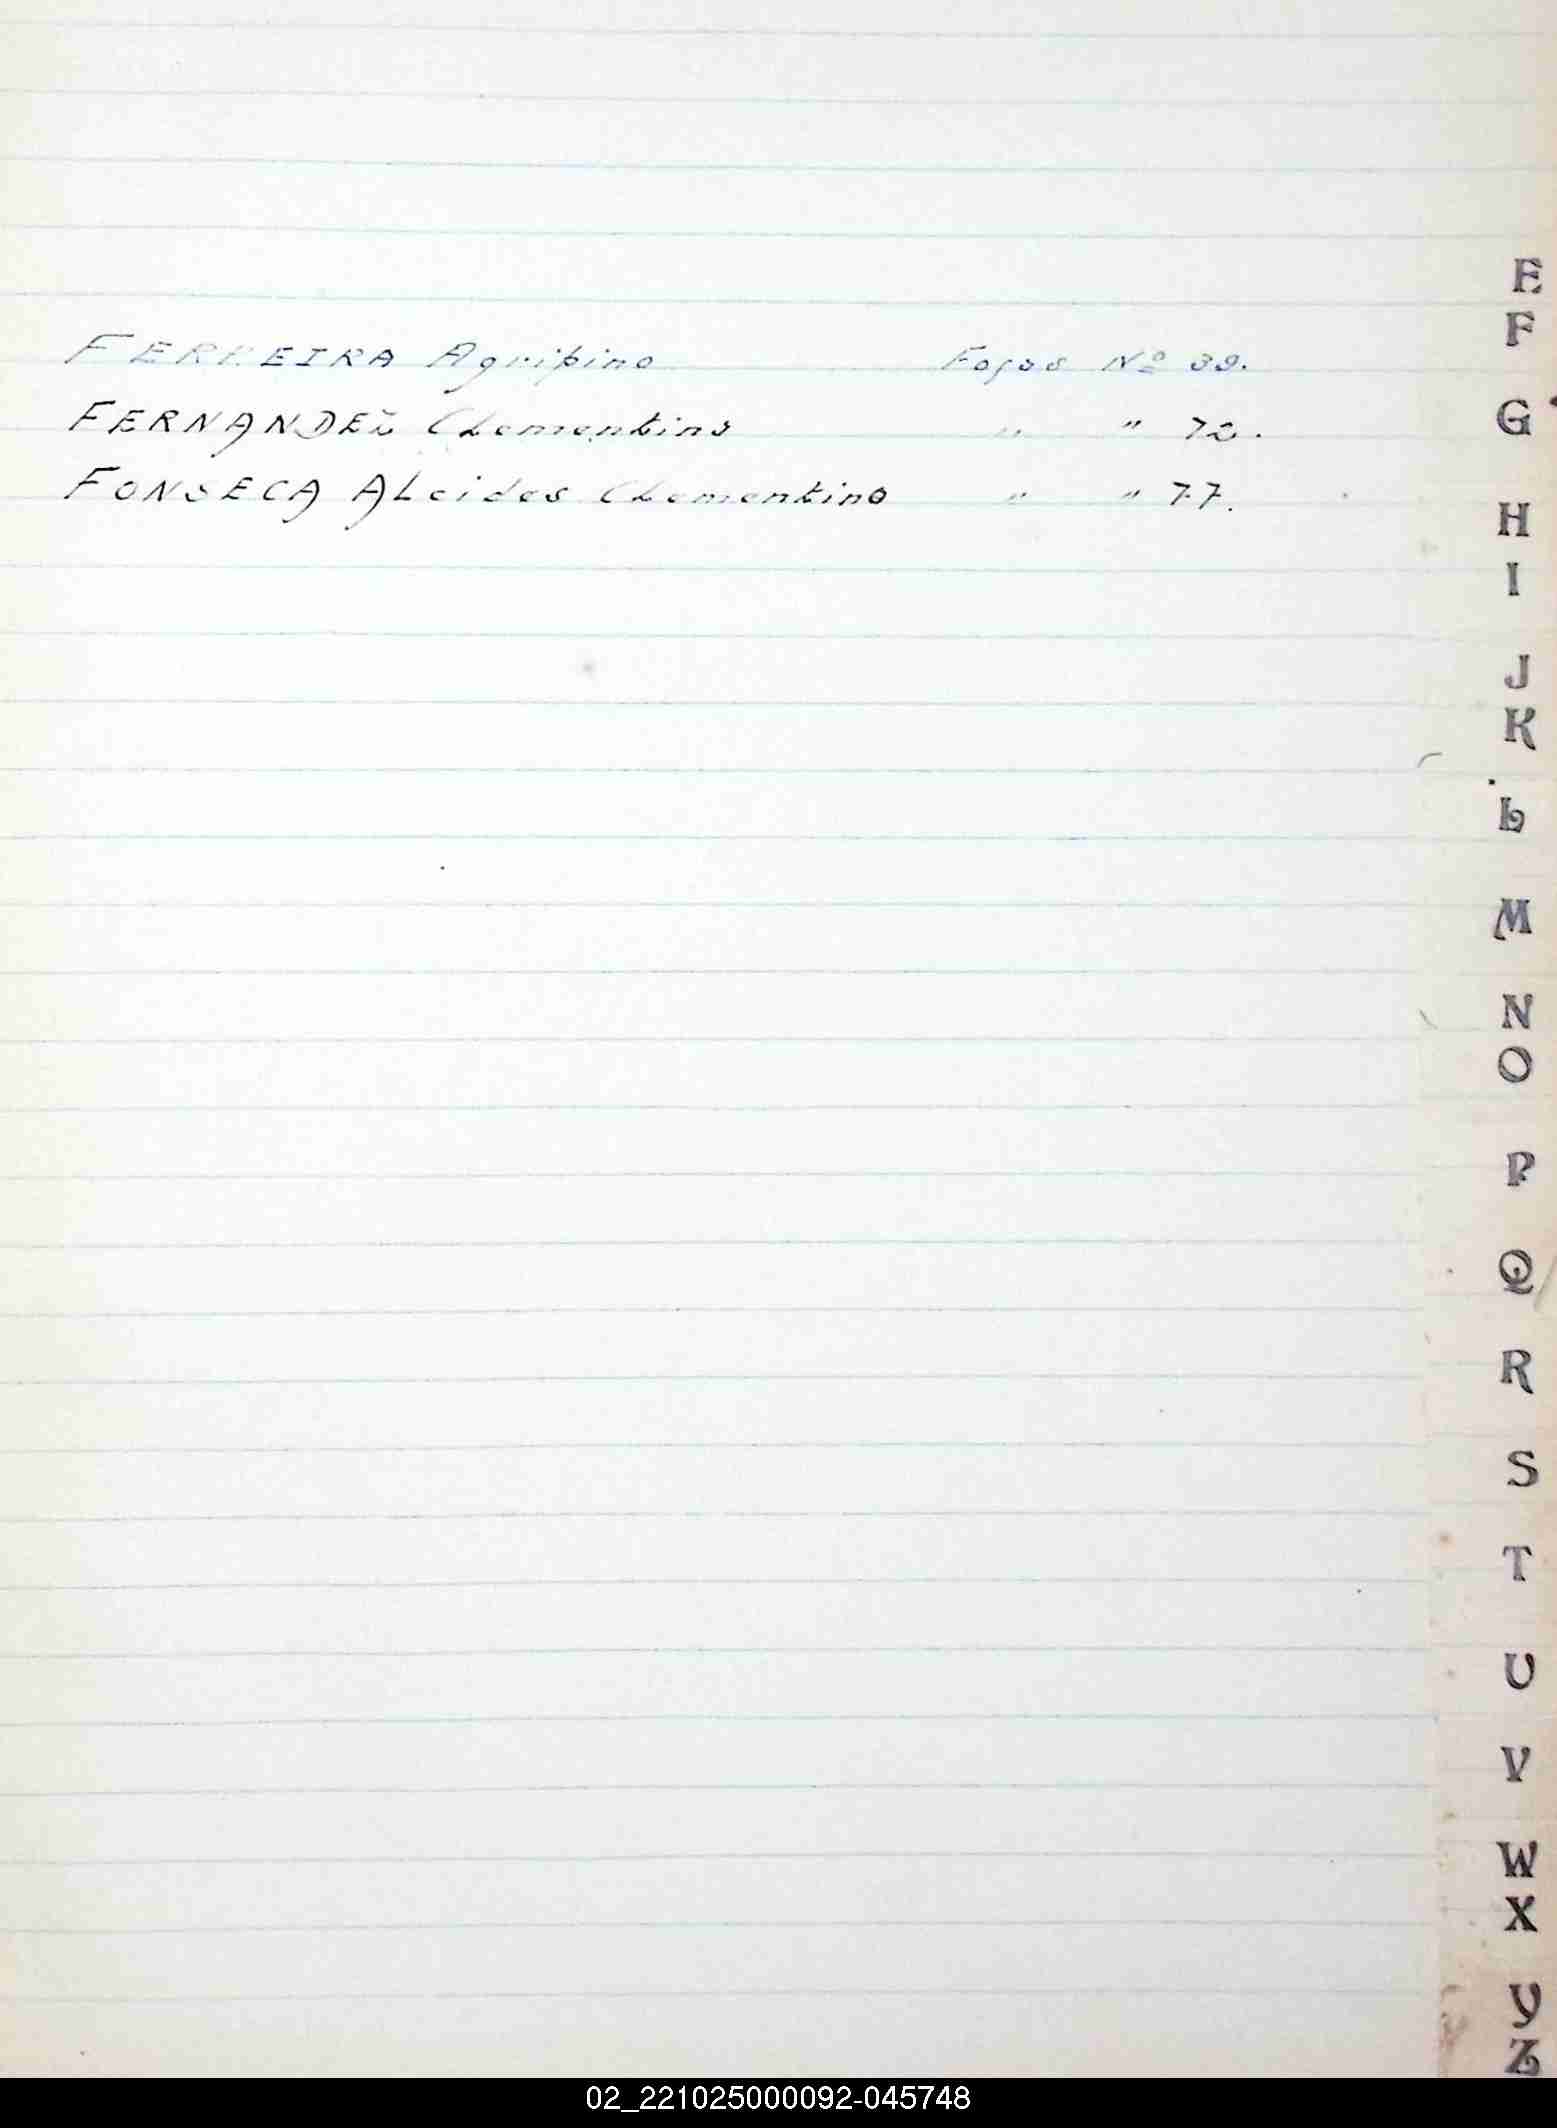 FERREIRA Agripino Fojas Nº 39.
FERNANDEZ Clementino " " 72.
FONSECA ALcides Clementino " " 77.
E
F
G
H
I
J
K
L
M
N
O
P
Q
R
S
T
U
V
W
X
Y
Z
02_221025000092-045748